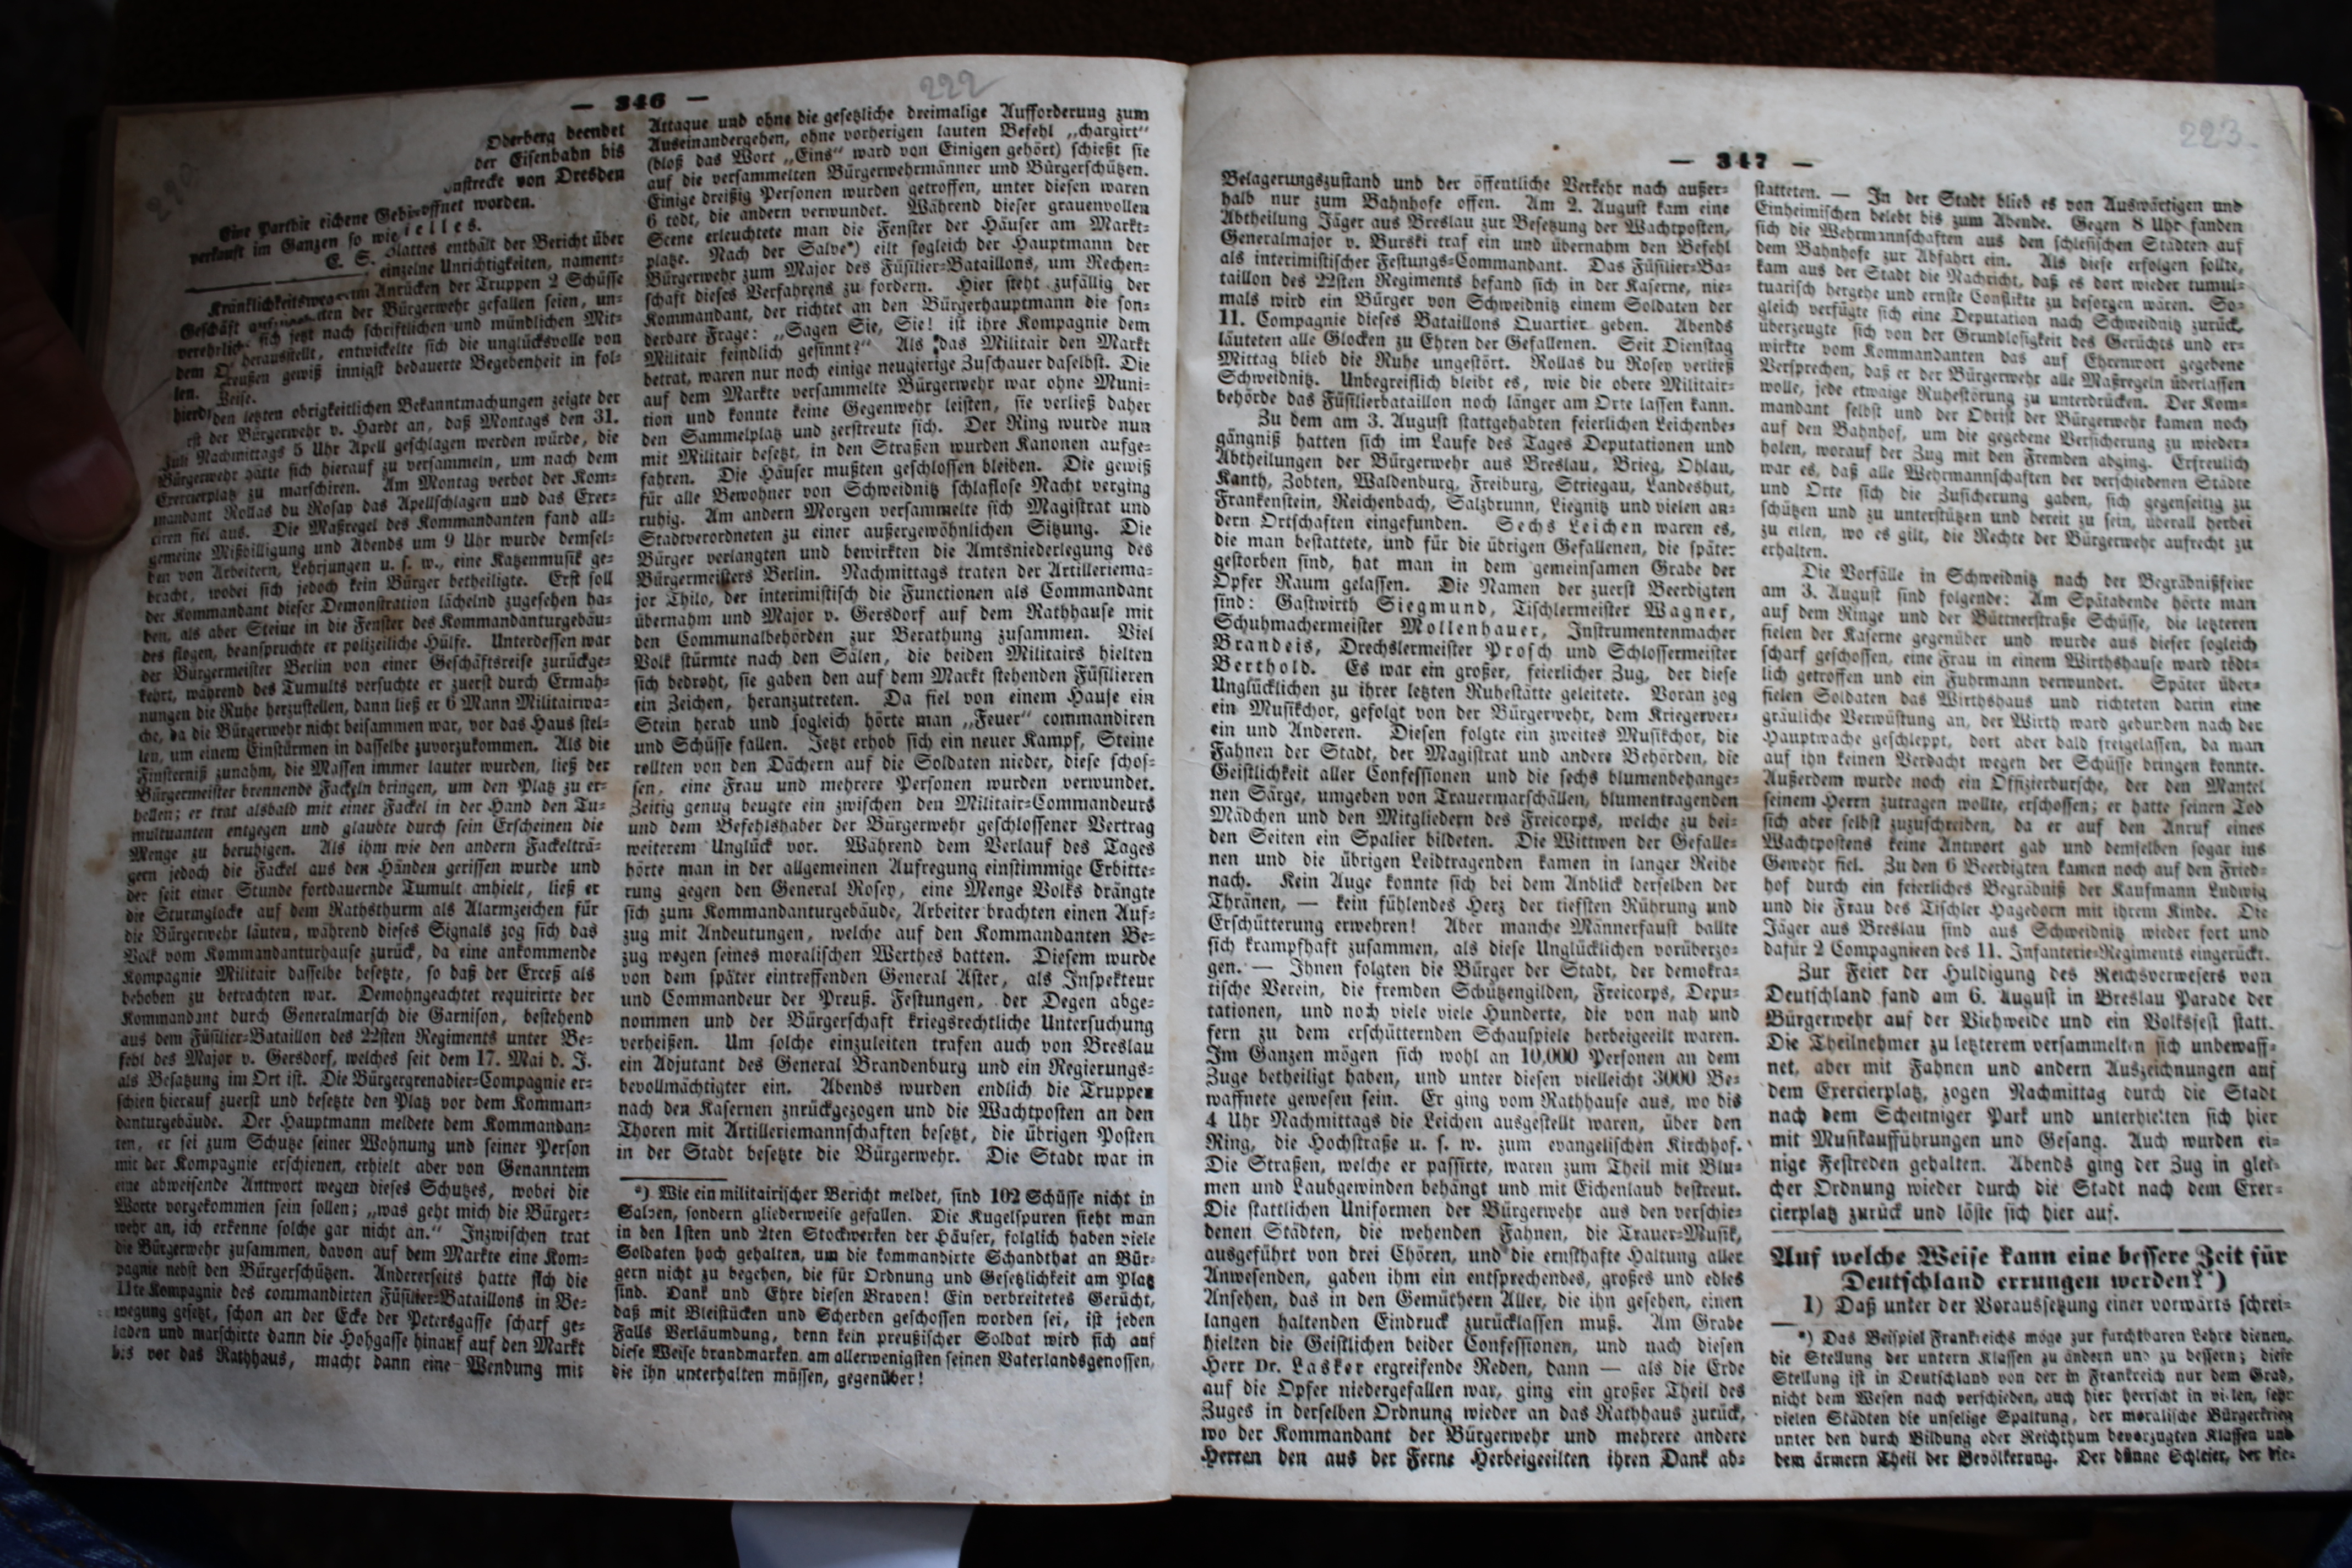 — 346 —
222
Oderberg beendet
der Eisenbahn bis
von Dresden
Eine Parthie eichene
verkauft im Ganzen so wie
E. S.
öffnet worden.
ielles.
Blattes enthält der Bericht über
einzelne Unrichtigkeiten, nament-
im Anrücken der Truppen 2 Schüsse
der Bürgerwehr gefallen seien, un-
sich jetzt nach schriftlichen und mündlichen Mit-
herausstellt, entwickelte sich die unglücksvolle von
Preußen gewiß innigst bedauerte Begebenheit in fol-
Weise.
den letzten obrigkeitlichen Bekanntmachungen zeigte der
der Bürgerwehr v. Hardt an, daß Montags den 31.
Juli Nachmittags 5 Uhr Apell geschlagen werden würde, die
Bürgerwehr hätte sich hierauf zu versammeln, um nach dem
Exercierplatz zu marschiren. Am Montag verbot der Kom-
mandant Rollas du Rosay das Apellschlagen und das Exer-
ciren fiel aus. Die Maßregel des Kommandanten fand all-
gemeine Mißbilligung und Abends um 9 Uhr wurde demsel-
ben von Arbeitern, Lehrjungen u. s. w., eine Katzenmusik ge-
bracht, wobei sich jedoch kein Bürger betheiligte. Erst soll
der Kommandant dieser Demonstration lächelnd zugesehen ha-
ben, als aber Steine in die Fenster des Kommandanturgebäu-
des flogen, beanspruchte er polizeiliche Hülfe. Unterdessen war
der Bürgermeister Berlin von einer Geschäftsreise zurückge-
kehrt, während des Tumults versuchte er zuerst durch Ermah-
nungen die Ruhe herzustellen, dann ließ er 6 Mann Militairwa-
che, da die Bürgerwehr nicht beisammen war, vor das Haus stel-
len, um einem Einstürmen in dasselbe zuvorzukommen. Als die
Finsterniß zunahm, die Massen immer lauter wurden, ließ der
Bürgermeister brennende Fackeln bringen, um den Platz zu er-
hellen; er trat alsbald mit einer Fackel in der Hand den Tu-
multuanten entgegen und glaubte durch sein Erscheinen die
Menge zu beruhigen. Als ihm wie den andern Fackelträ-
gern jedoch die Fackel aus den Händen gerissen wurde und
der seit einer Stunde fortdauernde Tumult anhielt, ließ er
die Sturmglocke auf dem Rathsthurm als Alarmzeichen für
die Bürgerwehr läuten, während dieses Signals zog sich das
Volk vom Kommandanturhause zurück, da eine ankommende
Kompagnie Militair dasselbe besetzte, so daß der Exceß als
behoben zu betrachten war. Demohngeachtet requirirte der
Kommandant durch Generalmarsch die Garnison, bestehend
aus dem Füsilier-Bataillon des 22sten Regiments unter Be-
fehl des Major v. Gersdorf, welches seit dem 17. Mai d. J.
als Besatzung im Ort ist. Die Bürgergrenadier-Compagnie er-
schien hierauf zuerst und besetzte den Platz vor dem Komman-
danturgebäude. Der Hauptmann meldete dem Kommandan-
ten, er sei zum Schutze seiner Wohnung und seiner Person
mit der Kompagnie erschienen, erhielt aber von Genanntem
eine abweisende Antwort wegen dieses Schutzes, wobei die
Worte vorgekommen sein sollen; „was geht mich die Bürger-
wehr an, ich erkenne solche gar nicht an.“ Inzwischen trat
die Bürgerwehr zusammen, davon auf dem Markte eine Kom-
pagnie nebst den Bürgerschützen. Andererseits hatte sich die
11te Kompagnie des commandirten Füsilier-Bataillons in Be-
wegung gesetzt, schon an der Ecke der Petersgasse scharf ge-
laden und marschirte dann die Hohgasse hinauf auf den Markt
bis vor das Rathhaus, macht dann eine Wendung mit
Attaque und ohne die gesetzliche dreimalige Aufforderung zum
Auseinandergehen, ohne vorherigen lauten Befehl „chargirt“
(bloß das Wort „Eins“ ward von Einigen gehört) schießt sie
auf die versammelten Bürgerwehrmänner und Bürgerschützen.
Einige dreißig Personen wurden getroffen, unter diesen waren
6 todt, die andern verwundet. Während dieser grauenvollen
Scene erleuchtete man die Fenster der Häuser am Markt-
platze. Nach der Salve*) eilt sogleich der Hauptmann der
Bürgerwehr zum Major des Füsilier-Bataillons, um Rechen-
schaft dieses Verfahrens zu fordern. Hier steht zufällig der
Kommandant, der richtet an den Bürgerhauptmann die son-
derbare Frage: „Sagen Sie, Sie! ist ihre Kompagnie dem
Militair feindlich gesinnt?“ Als das Militair den Markt
betrat, waren nur noch einige neugierige Zuschauer daselbst. Die
auf dem Markte versammelte Bürgerwehr war ohne Muni-
tion und konnte keine Gegenwehr leisten, sie verließ daher
den Sammelplatz und zerstreute sich. Der Ring wurde nun
mit Militair besetzt, in den Straßen wurden Kanonen aufge-
fahren. Die Häuser mußten geschlossen bleiben. Die gewiß
für alle Bewohner von Schweidnitz schlaflose Nacht verging
ruhig. Am andern Morgen versammelte sich Magistrat und
Stadtverordneten zu einer außergewöhnlichen Sitzung. Die
Bürger verlangten und bewirkten die Amtsniederlegung des
Bürgermeisters Berlin. Nachmittags traten der Artilleriema-
jor Thilo, der interimistisch die Functionen als Commandant
übernahm und Major v. Gersdorf auf dem Rathhause mit
den Communalbehörden zur Berathung zusammen. Viel
Volk stürmte nach den Sälen, die beiden Militairs hielten
sich bedroht, sie gaben den auf dem Markt stehenden Füsilieren
ein Zeichen, heranzutreten. Da fiel von einem Hause ein
Stein herab und sogleich hörte man „Feuer“ commandiren
und Schüsse fallen. Jetzt erhob sich ein neuer Kampf, Steine
rollten von den Dächern auf die Soldaten nieder, diese schos-
sen, eine Frau und mehrere Personen wurden verwundet.
Zeitig genug beugte ein zwischen den Militair-Commandeurs
und dem Befehlshaber der Bürgerwehr geschlossener Vertrag
weiterem Unglück vor. Während dem Verlauf des Tages
hörte man in der allgemeinen Aufregung einstimmige Erbitte-
rung gegen den General Rosey, eine Menge Volks drängte
sich zum Kommandanturgebäude, Arbeiter brachten einen Auf-
zug mit Andeutungen, welche auf den Kommandanten Be-
zug wegen seines moralischen Werthes hatten. Diesem wurde
von dem später eintreffenden General Aster, als Inspekteur
und Commandeur der Preuß. Festungen, der Degen abge-
nommen und der Bürgerschaft kriegsrechtliche Untersuchung
verheißen. Um solche einzuleiten trafen auch von Breslau
ein Adjutant des General Brandenburg und ein Regierungs-
bevollmächtigter ein. Abends wurden endlich die Truppen
nach den Kasernen znrückgezogen und die Wachtposten an den
Thoren mit Artilleriemannschaften besetzt, die übrigen Posten
in der Stadt besetzte die Bürgerwehr. Die Stadt war in
*) Wie ein militairischer Bericht meldet, sind 102 Schüsse nicht in
Salven, sondern gliederweise gefallen. Die Kugelspuren sieht man
in den 1sten und 2ten Stockwerken der Häuser, folglich haben viele
Soldaten hoch gehalten, um die kommandirte Schandthat an Bür-
gern nicht zu begehen, die für Ordnung und Gesetzlichkeit am Platz
sind. Dank und Ehre diesen Braven! Ein verbreitetes Gerücht,
daß mit Bleistücken und Scherben geschossen worden sei, ist jeden
Falls Verläumdung, denn kein preußischer Soldat wird sich auf
diese Weise brandmarken, am allerwenigsten seinen Vaterlandsgenossen,
die ihn unterhalten müssen, gegenüber!
— 347 —
223
Belagerungszustand und der öffentliche Verkehr nach außer-
halb nur zum Bahnhofe offen. Am 2. August kam eine
Abtheilung Jäger aus Breslau zur Besetzung der Wachtposten,
Generalmajor v. Burski traf ein und übernahm den Befehl
als interimistischer Festungs-Commandant. Das Füsilier-Ba-
taillon des 22sten Regiments befand sich in der Kaserne, nie-
mals wird ein Bürger von Schweidnitz einem Soldaten der
11. Compagnie dieses Bataillons Quartier geben. Abends
läuteten alle Glocken zu Ehren der Gefallenen. Seit Dienstag
Mittag blieb die Ruhe ungestört. Rollas du Rosey verließ
Schweidnitz. Unbegreiflich bleibt es, wie die obere Militair-
behörde das Füsilierbataillon noch länger am Orte lassen kann.
Zu dem am 3. August stattgehabten feierlichen Leichenbe-
gängniß hatten sich im Laufe des Tages Deputationen und
Abtheilungen der Bürgerwehr aus Breslau, Brieg, Ohlau,
Kanth, Zobten, Waldenburg, Freiburg, Striegau, Landeshut,
Frankenstein, Reichenbach, Salzbrunn, Liegnitz und vielen an-
dern Ortschaften eingefunden. Sechs Leichen waren es,
die man bestattete, und für die übrigen Gefallenen, die später
gestorben sind, hat man in dem gemeinsamen Grabe der
Opfer Raum gelassen. Die Namen der zuerst Beerdigten
sind: Gastwirth Siegmund, Tischlermeister Wagner,
Schuhmachermeister Mollenhauer, Instrumentenmacher
Brandeis, Drechslermeister Prosch und Schlossermeister
Berthold. Es war ein großer, feierlicher Zug, der diese
Unglücklichen zu ihrer letzten Ruhestätte geleitete. Voran zog
ein Musikchor, gefolgt von der Bürgerwehr, dem Kriegerver-
ein und Anderen. Diesen folgte ein zweites Musikchor, die
Fahnen der Stadt, der Magistrat und andere Behörden, die
Geistlichkeit aller Confessionen und die sechs blumenbehange-
nen Särge, umgeben von Trauermarschällen, blumentragenden
Mädchen und den Mitgliedern des Freicorps, welche zu bei-
den Seiten ein Spalier bildeten. Die Wittwen der Gefalle-
nen und die übrigen Leidtragenden kamen in langer Reihe
nach. Kein Auge konnte sich bei dem Anblick derselben der
Thränen, — kein fühlendes Herz der tiefsten Rührung und
Erschütterung erwehren! Aber manche Männerfaust ballte
sich krampfhaft zusammen, als diese Unglücklichen vorüberzo-
gen. — Ihnen folgten die Bürger der Stadt, der demokra-
tische Verein, die fremden Schützengilden, Freicorps, Depu-
tationen, und noch viele viele Hunderte, die von nah und
fern zu dem erschütternden Schauspiele herbeigeeilt waren.
Im Ganzen mögen sich wohl an 10,000 Personen an dem
Zuge betheiligt haben, und unter diesen vielleicht 3000 Be-
waffnete gewesen sein. Er ging vom Rathhause aus, wo bis
4 Uhr Nachmittags die Leichen ausgestellt waren, über den
Ring, die Hochstraße u. s. w. zum evangelischen Kirchhof.
Die Straßen, welche er passirte, waren zum Theil mit Blu-
men und Laubgewinden behängt und mit Eichenlaub bestreut.
Die stattlichen Uniformen der Bürgerwehr aus den verschie-
denen Städten, die wehenden Fahnen, die Trauer-Musik,
ausgeführt von drei Chören, und die ernsthafte Haltung aller
Anwesenden, gaben ihm ein entsprechendes, großes und edles
Ansehen, das in den Gemüthern Aller, die ihn gesehen, einen
langen haltenden Eindruck zurücklassen muß. Am Grabe
hielten die Geistlichen beider Confessionen, und nach diesen
Herr Dr. Lasker ergreifende Reden, dann — als die Erde
auf die Opfer niedergefallen war, ging ein großer Theil des
Zuges in derselben Ordnung wieder an das Rathhaus zurück,
wo der Kommandant der Bürgerwehr und mehrere andere
Herren den aus der Ferne Herbeigeeilten ihren Dank ab-
statteten. — In der Stadt blieb es von Auswärtigen und
Einheimischen belebt bis zum Abende. Gegen 8 Uhr fanden
sich die Wehrmannschaften aus den schlesischen Städten auf
dem Bahnhofe zur Abfahrt ein. Als diese erfolgen sollte,
kam aus der Stadt die Nachricht, daß es dort wieder tumul-
tuarisch hergehe und ernste Conflikte zu besorgen wären. So-
gleich verfügte sich eine Deputation nach Schweidnitz zurück,
überzeugte sich von der Grundlosigkeit des Gerüchts und er-
wirkte vom Kommandanten das auf Ehrenwort gegebene
Versprechen, daß er der Bürgerwehr alle Maßregeln überlassen
wolle, jede etwaige Ruhestörung zu unterdrücken. Der Kom-
mandant selbst und der Obrist der Bürgerwehr kamen noch
auf den Bahnhof, um die gegebene Versicherung zu wieder-
holen, worauf der Zug mit den Fremden abging. Erfreulich
war es, daß alle Wehrmannschaften der verschiedenen Städte
und Orte sich die Zusicherung gaben, sich gegenseitig zu
schützen und zu unterstützen und bereit zu sein, überall herbei
zu eilen, wo es gilt, die Rechte der Bürgerwehr aufrecht zu
erhalten.
Die Vorfälle in Schweidnitz nach der Begräbnißfeier
am 3. August sind folgende: Am Spätabende hörte man
auf dem Ringe und der Büttnerstraße Schüsse, die letzteren
fielen der Kaserne gegenüber und wurde aus dieser sogleich
scharf geschossen, eine Frau in einem Wirthshause ward tödt-
lich getroffen und ein Fuhrmann verwundet. Später über-
fielen Soldaten das Wirthshaus und richteten darin eine
gräuliche Verwüstung an, der Wirth ward gebunden nach der
Hauptwache geschleppt, dort aber bald freigelassen, da man
auf ihn keinen Verdacht wegen der Schüsse bringen konnte.
Außerdem wurde noch ein Offizierbursche, der den Mantel
seinem Herrn zutragen wollte, erschossen; er hatte seinen Tod
sich aber selbst zuzuschreiben, da er auf den Anruf eines
Wachtpostens keine Antwort gab und demselben sogar ins
Gewehr fiel. Zu den 6 Beerdigten kamen noch auf den Fried-
hof durch ein feierliches Begräbniß der Kaufmann Ludwig
und die Frau des Tischler Hagedorn mit ihrem Kinde. Die
Jäger aus Breslau sind aus Schweidnitz wieder fort und
dafür 2 Compagnieen des 11. Infanterie-Regiments eingerückt.
Zur Feier der Huldigung des Reichsverwesers von
Deutschland fand am 6. August in Breslau Parade der
Bürgerwehr auf der Viehweide und ein Volksfest statt.
Die Theilnehmer zu letzterem versammelten sich unbewaff-
net, aber mit Fahnen und andern Auszeichnungen auf
dem Exercierplatz, zogen Nachmittag durch die Stadt
nach dem Scheitniger Park und unterhielten sich hier
mit Musikaufführungen und Gesang. Auch wurden ei-
nige Festreden gehalten. Abends ging der Zug in glei-
cher Ordnung wieder durch die Stadt nach dem Exer-
cierplatz zurück und löste sich hier auf.
Auf welche Weise kann eine bessere Zeit für
Deutschland errungen werden?*)
1) Daß unter der Voraussetzung einer vorwärts schrei-
*) Das Beispiel Frankreichs möge zur furchtbaren Lehre dienen,
die Stellung der untern Klassen zu ändern und zu bessern; diese
Stellung ist in Deutschland von der in Frankreich nur dem Grad,
nicht dem Wesen nach verschieden, auch hier herrscht in vielen, sehr
vielen Städten die unselige Spaltung, der moralische Bürgerkrieg
unter den durch Bildung oder Reichthum bevorzugten Klassen und
dem ärmern Theil der Bevölkerung. Der dünne Schleier, der die-